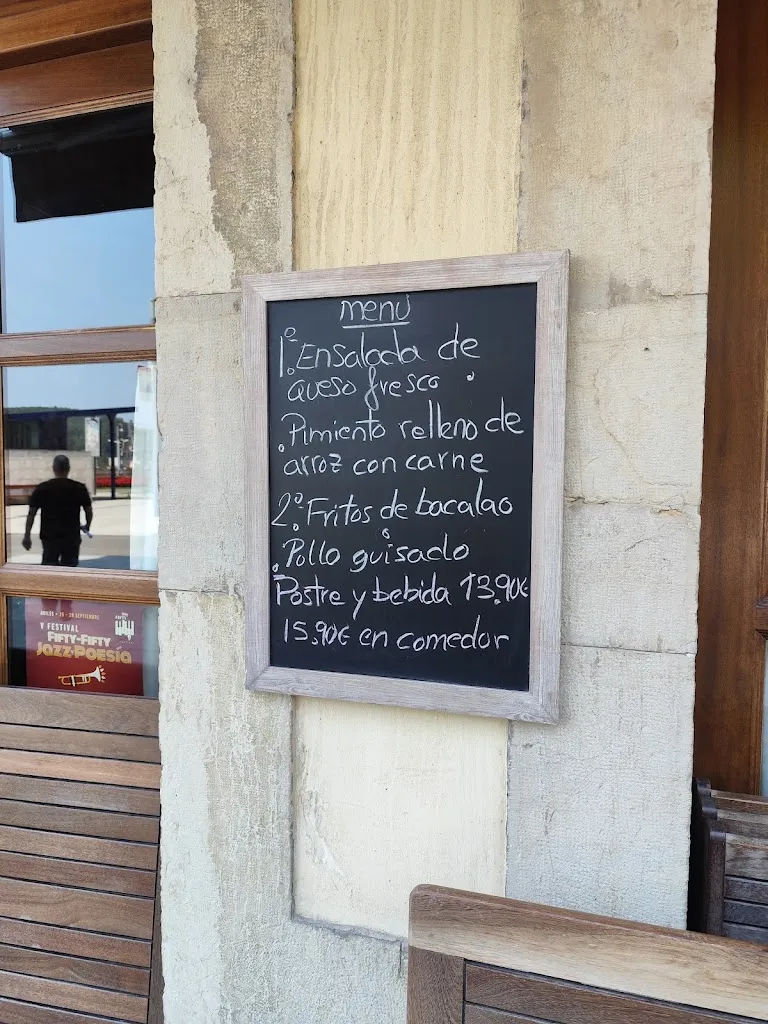 menú
1.º Ensalada de
queso fresco
. Pimiento relleno de
arroz con carne
2.º Fritos de bacalao
. Pollo guisado
Postre y bebida 13.90€
15.90€ en comedor
V FESTIVAL
FIFTY-FIFTY
JAZZ-POESÍA